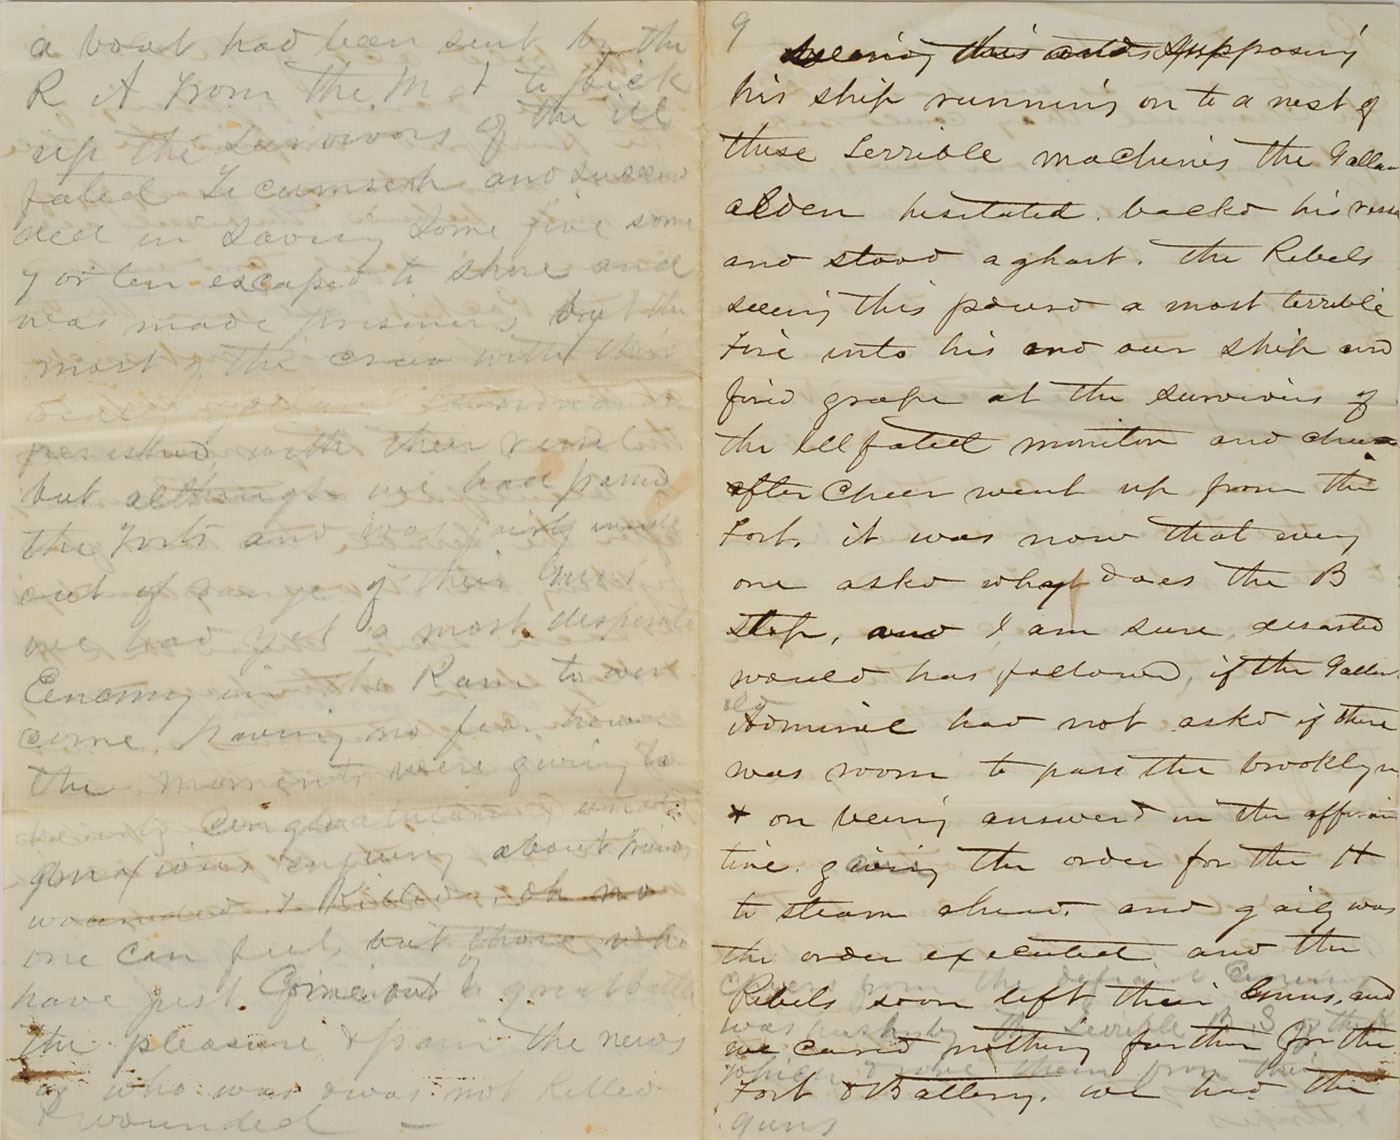 a boat had been sent by the
R A from the M et to pick
up the survivors of the ill
fated Tecumseh and succee
ded in saving some five some
9 or ten escaped to shore and
was made prisiners but the
most of the crew with
perished with their vessel
but although we had passed
the Forts and was fairly inside
out of range of their Guns
we had yet a most desperate
Eenomy in the Ram to over
come. having no fear however
the moments were giving to
hearty Congratulations
anxious inquiry about friends
wounded & Killed, oh no
one can feel but those who
have just Come out of a great battle
the pleasure & pain the news
of who was or was not Killed
& wounded –
9
seeing this and supposing
his ship running on to a nest of
these terrible machines the Gallant
alden hesitated. backd his vessel
and stood aghast. the Rebels
seeing this pourd a most terrible
Fire into his and our ship and
fired grape at the survivors of
the ill fated monitor and cheer
after Cheer went up from the
Fort. it was now that every
one askd what does the B
stop, and I am sure disasted
would has followed, if the Gallant
old
Admiral had not askd if there
was room to pass the brooklyn
& on being answerd in the affirma
tive. giving the order for the H
to steam ahead. and gaily was
the order executed. and the
Cheers from the defiant Enemy
Rebels soon left their Guns, and
was hushd by the terrible B. S of the R
we cared nothing further for the
which drove them from their
Fort & Battery. we had the
guns